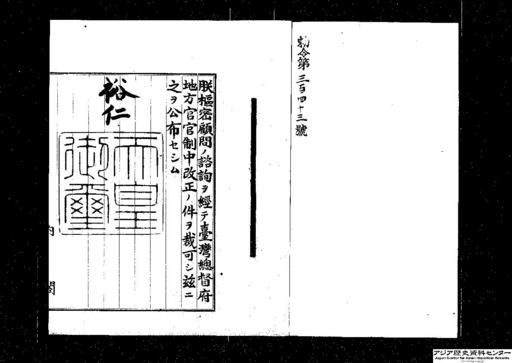 勅令第三百四十三號
朕樞密顧問ノ諮詢ヲ經テ臺灣總督府
地方官官制中改正ノ件ヲ裁可シ茲ニ
之ヲ公布セシム
裕仁
天皇御璽
内閣
アジア歴史資料センター
Japan Center for Asian Historical Records